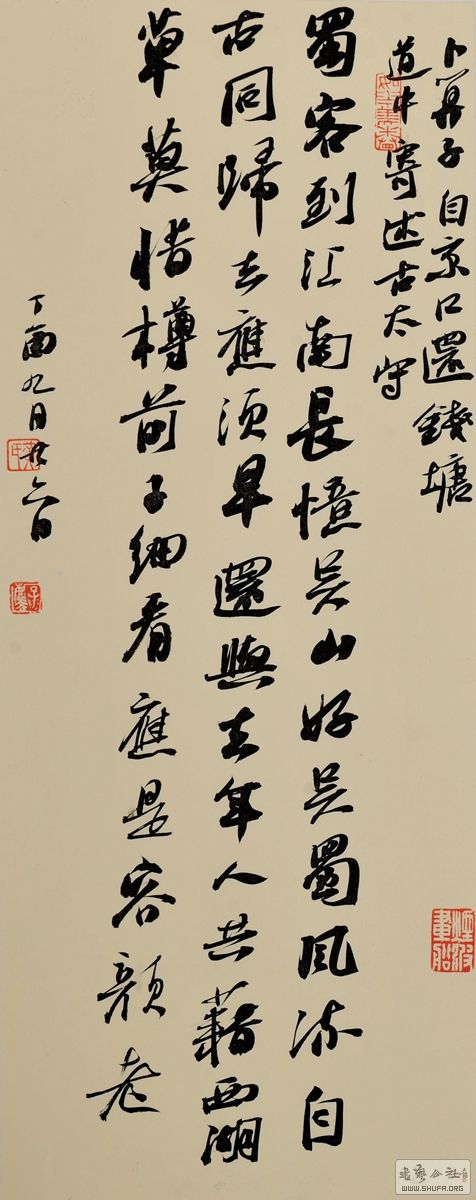 卜算子 自京口還錢塘
道中寄述古太守
蜀客到江南長憶吳山好吳蜀風流自
古同歸去應須早還與去年人共藉西湖
草莫惜樽前子細看應是容顏老
丁酉九月廿六日
煙波畫船
書藝公社
WWW.SHUFA.ORG